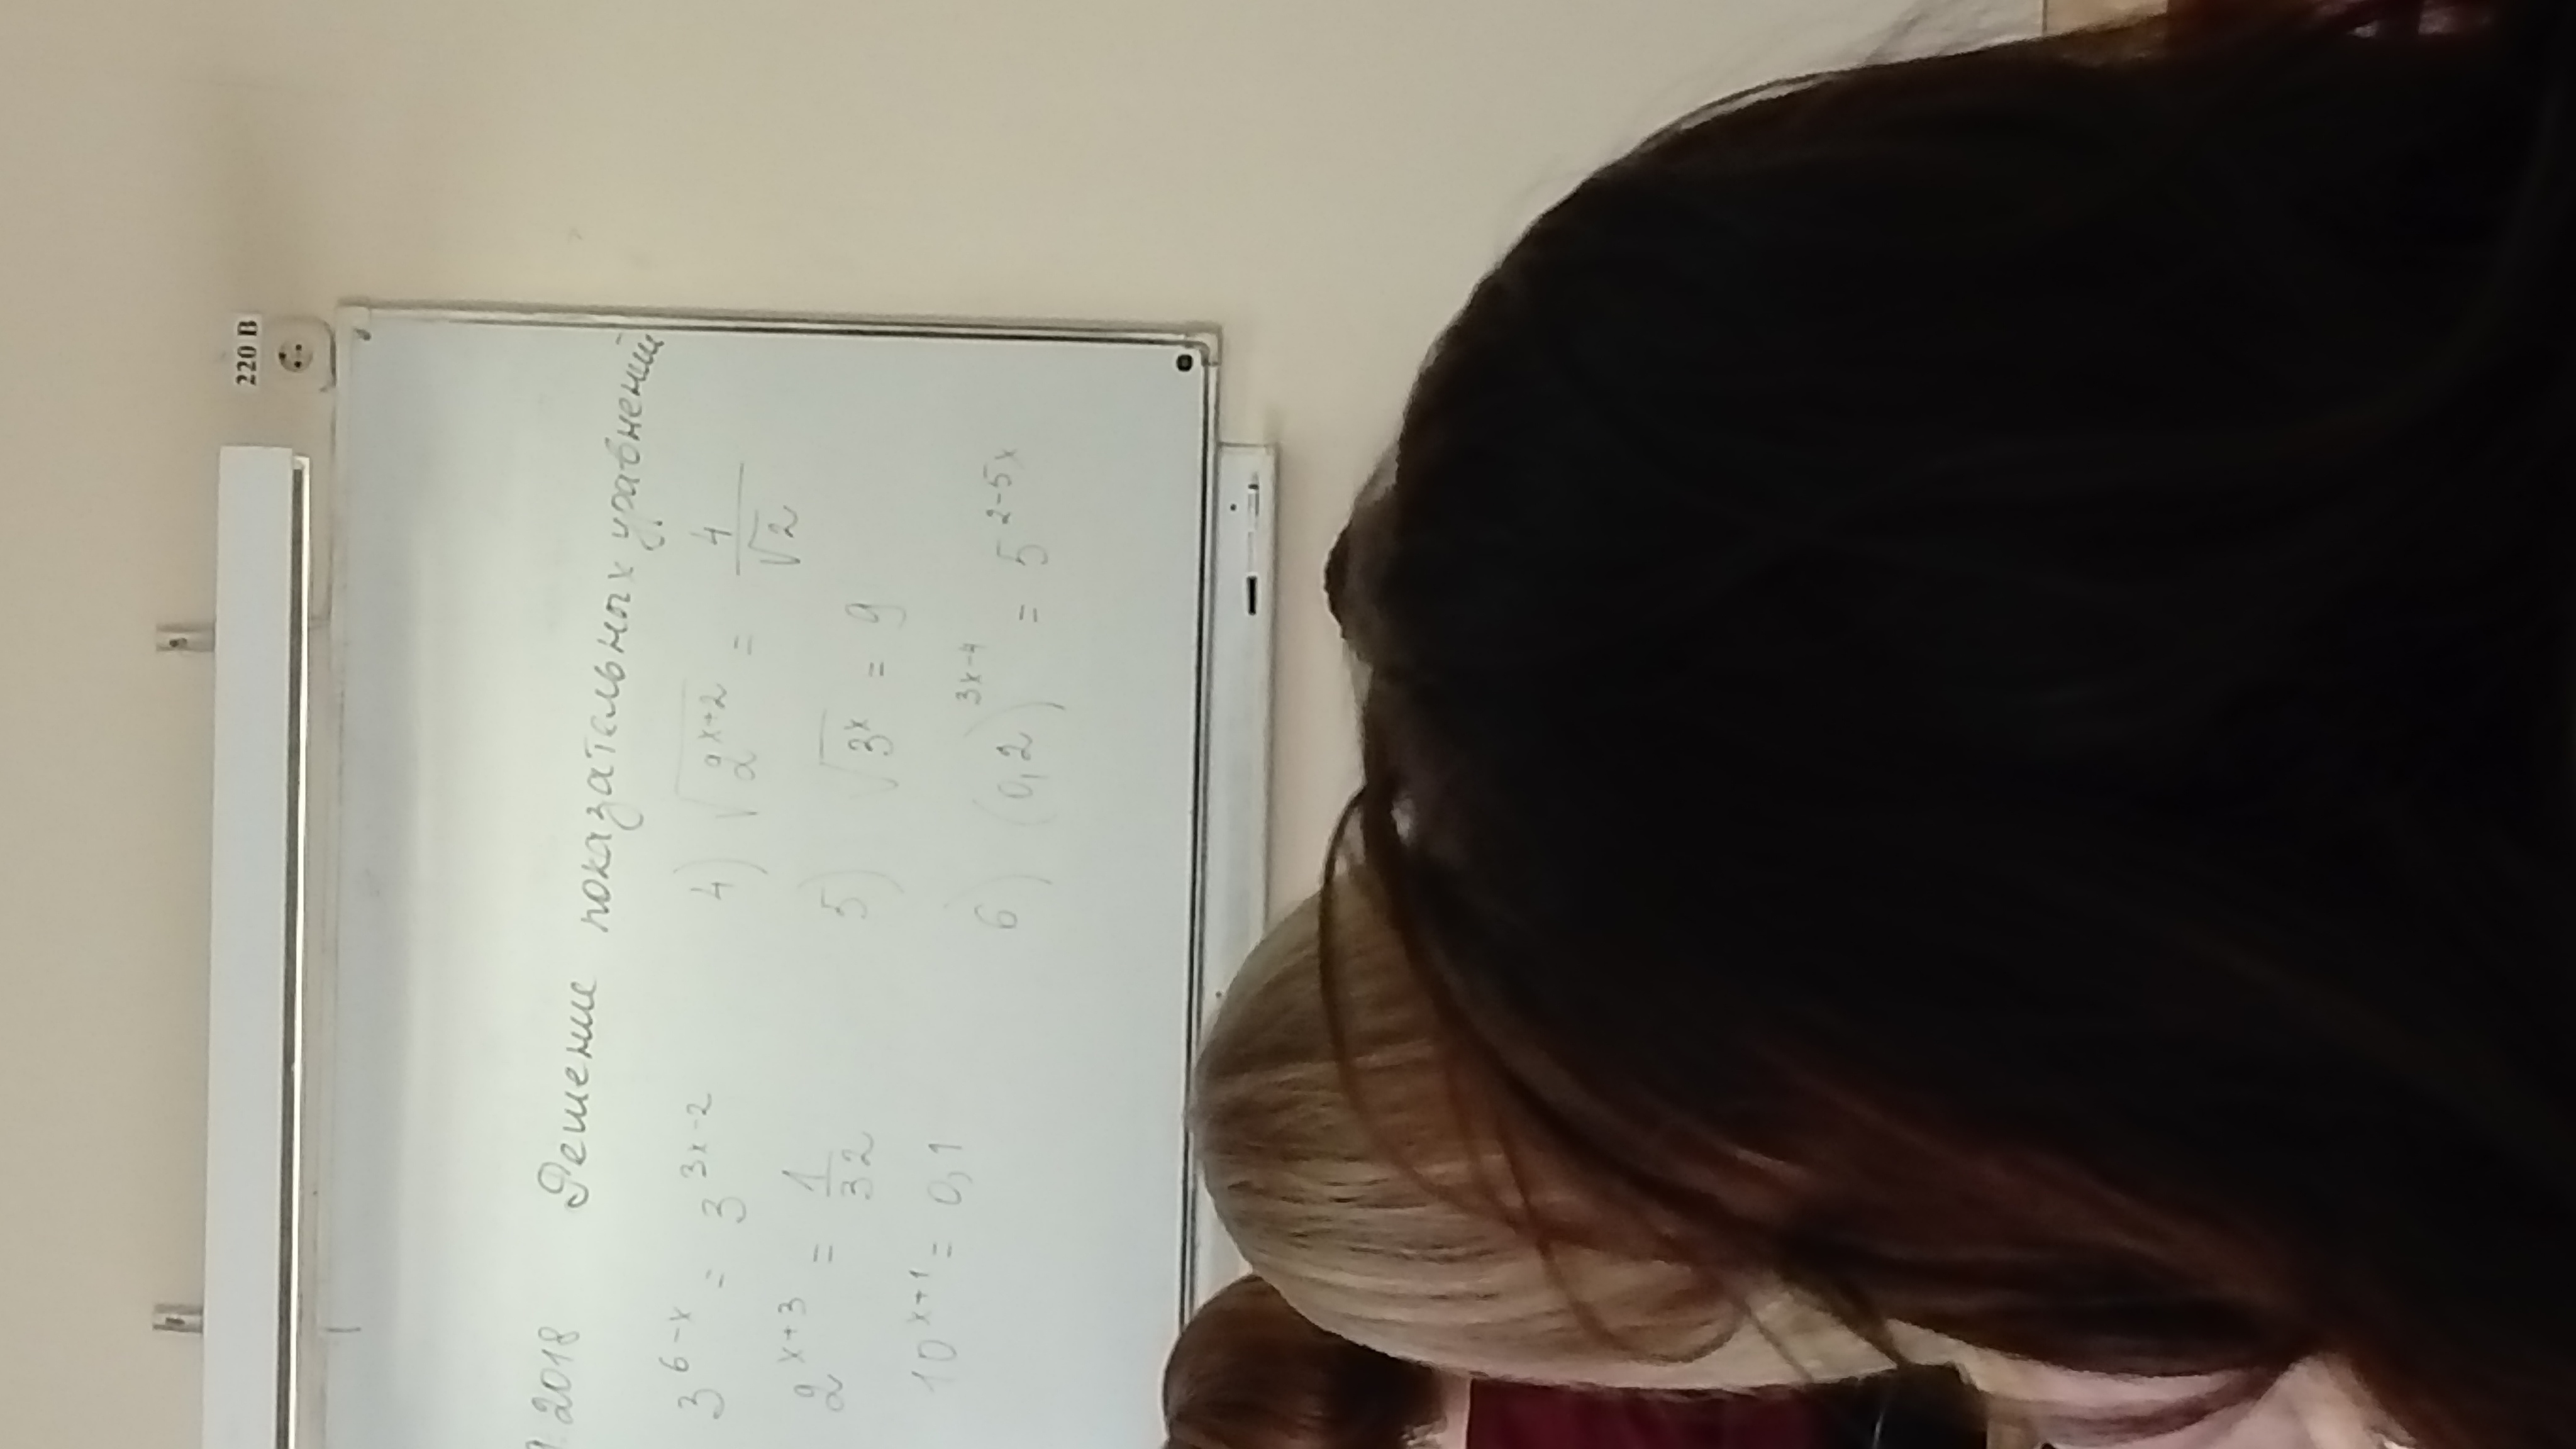 220 В
.2018 Решение показательных уравнений
3^{6-x} = 3^{3x-2}
2^{x+3} = \frac{1}{32}
10^{x+1} = 0,1
4) \sqrt{2^{x+2}} = \frac{4}{\sqrt{2}}
5) \sqrt{3^x} = 9
6) (0,2)^{3x-4} = 5^{2-5x}